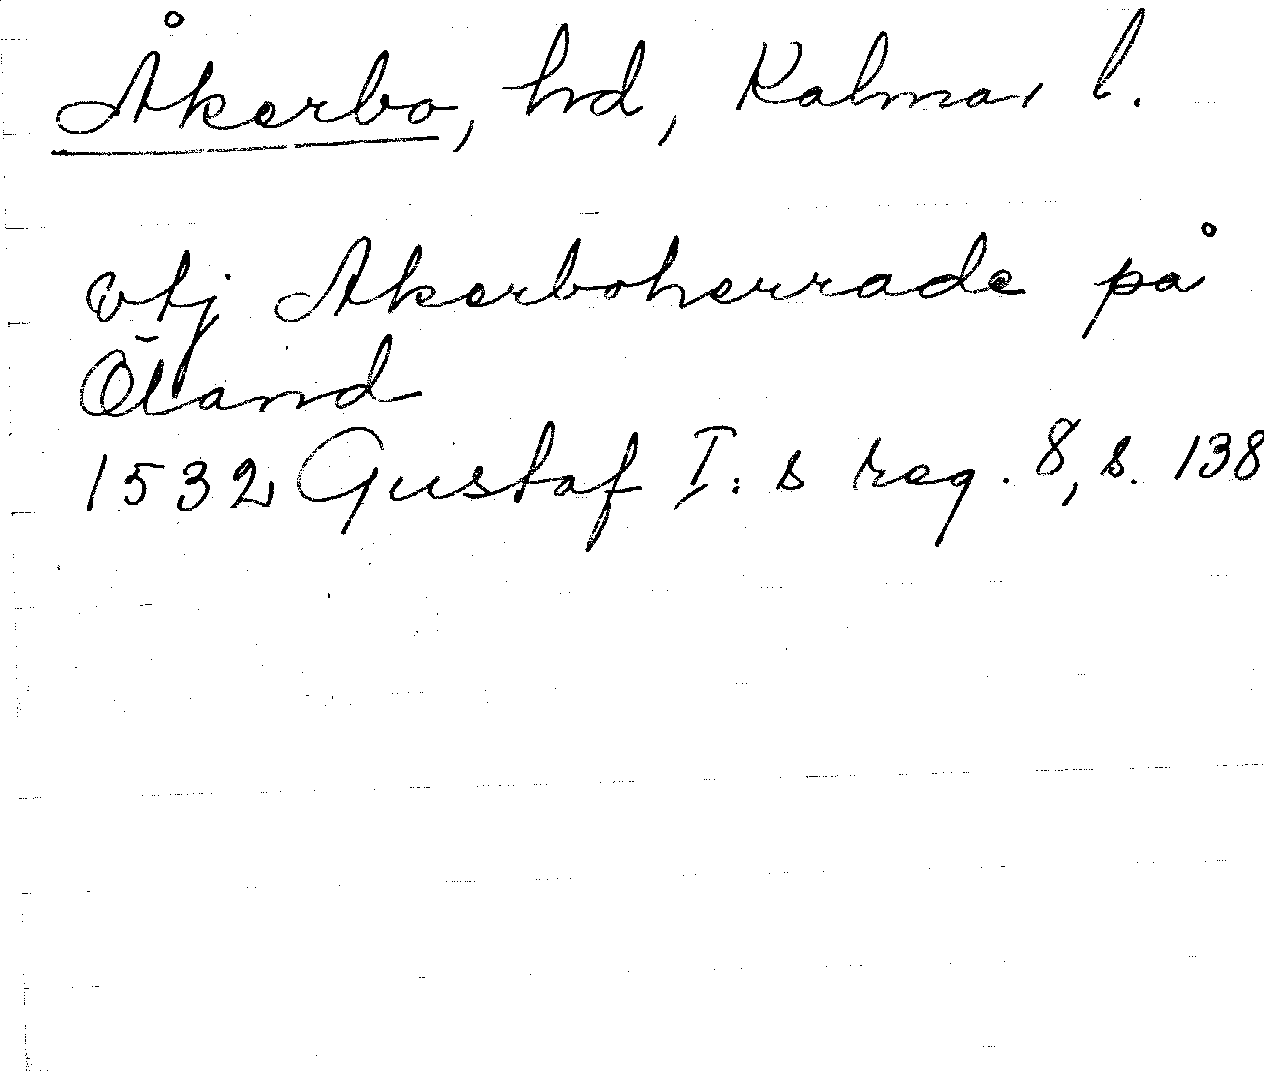 Åkerbo, hd, Kalmar l.
vtj Akerboherrade på
Öland
1532 Gustaf I:s reg. 8, s. 138